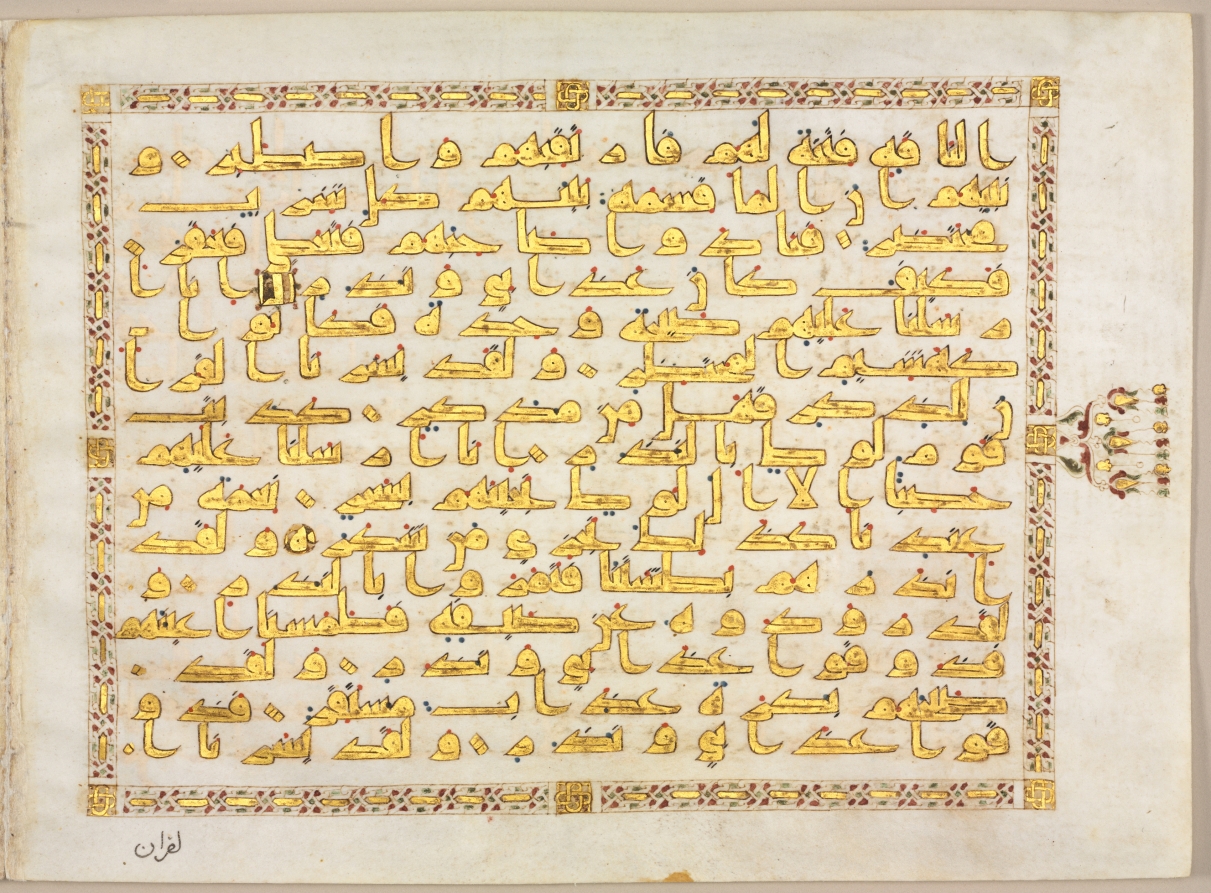 ا الناقة فتنة لهم فارتقبهم واصطبر و
نبئهم ان الما قسمة بينهم كل شرب
محتضر فنادوا صاحبهم فتعطى فعقر
فكيف كان عذابي ونذر انا ا
رسلنا عليهم صيحة وحدة فكانوا
كهشيم المحتظر ولقد يسرنا القرا
ن للذكر فهل من مدكر كذبت
قوم لوط بالنذر انا ارسلنا عليهم
حصبا الا ال لوط نجينهم بسحر نعمة من
عندنا كذلك نجزي من شكر ولقد
انذرهم بطشتنا فتمروا بالنذر و
لقد رودوه عن ضيفه فطمسنا اعينهم
فذوقوا عذابي ونذر ولقد
صبحهم بكرة عذاب مستقر فذو
قوا عذابي ونذر ولقد يسرنا ا
لقران